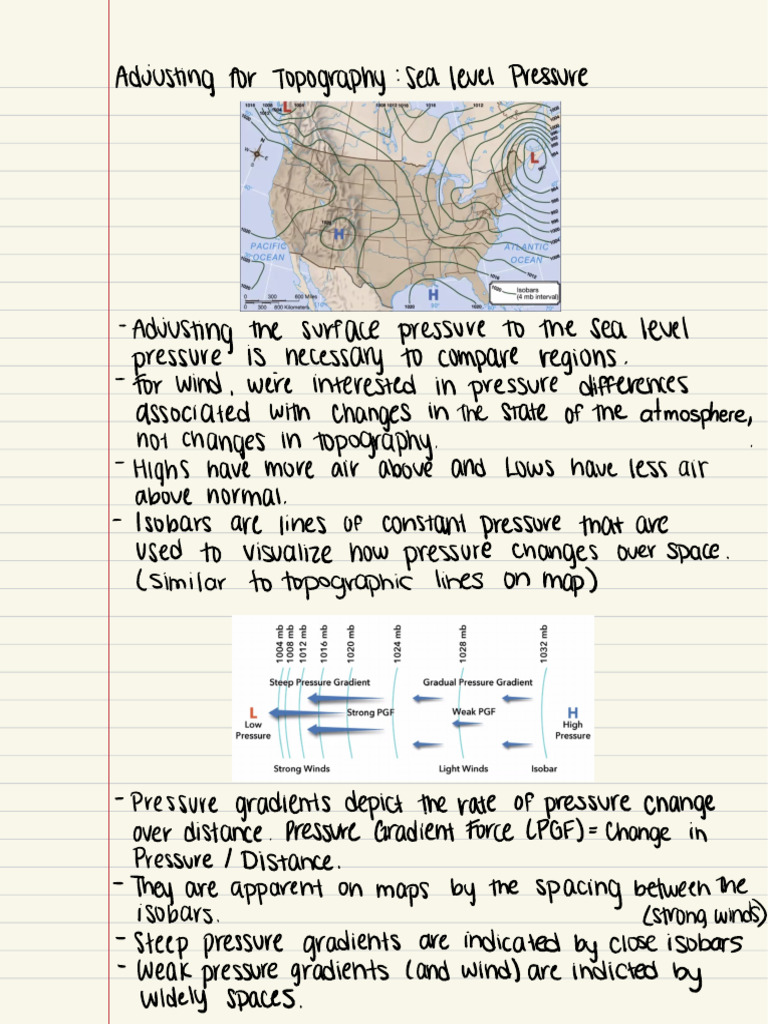 Adjusting for Topography: Sea level Pressure
L
L
H
PACIFIC
OCEAN
ATLANTIC
OCEAN
H
Isobars
(4 mb interval)
0 300 600 Miles
0 300 600 Kilometers
- Adjusting the surface pressure to the sea level
pressure is necessary to compare regions.
- For wind, we're interested in pressure differences
associated with changes in the state of the atmosphere,
not changes in topography.
- Highs have more air above and Lows have less air
above normal.
- Isobars are lines of constant pressure that are
used to visualize how pressure changes over space.
(similar to topographic lines on map)
1004 mb 1008 mb 1012 mb 1016 mb 1020 mb 1024 mb 1028 mb 1032 mb
Steep Pressure Gradient Gradual Pressure Gradient
L Strong PGF Weak PGF H
Low High
Pressure Pressure
Strong Winds Light Winds Isobar
- Pressure gradients depict the rate of pressure change
over distance. Pressure Gradient Force (PGF) = Change in
Pressure / Distance.
- They are apparent on maps by the spacing between the
isobars. (strong winds)
- Steep pressure gradients are indicated by close isobars
- Weak pressure gradients (and wind) are indicted by
widely spaces.